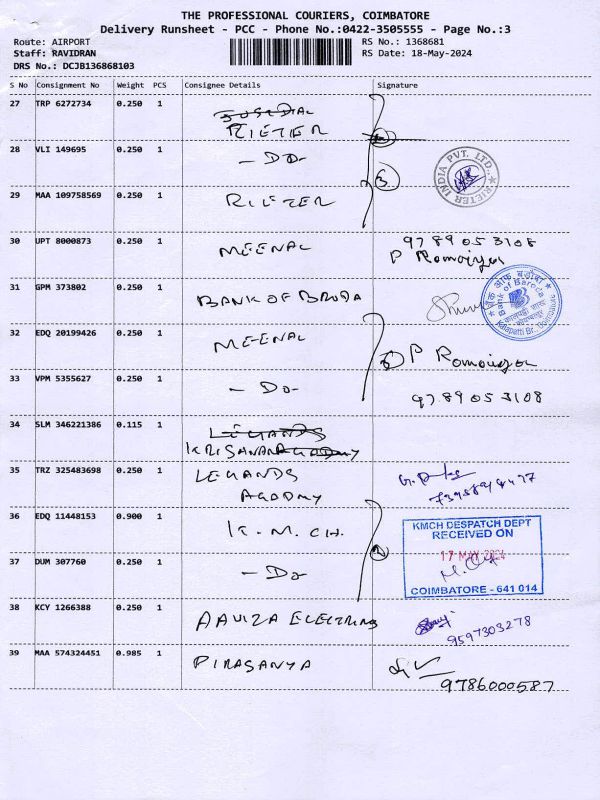 THE PROFESSIONAL COURIERS, COIMBATORE
Delivery Runsheet - PCC - Phone No.:0422-3505555 - Page No.:3
Route: AIRPORT
RS No.: 1368681
Staff: RAVIDRAN
RS Date: 18-May-2024
DRS No.: DCJB136868103
S No Consignment No Weight PCS Consignee Details Signature
27 TRP 6272734 0.250 1
RIETER
28 VLI 149695 0.250 1 - DO -
RIETER INDIA PVT. LTD.
29 MAA 109758569 0.250 1 RIETER
30 UPT 8000873 0.250 1 MEENAL 9789053108
31 GPM 373802 0.250 1 BANK OF BRODA
बैंक ऑफ़ बड़ौदा
Bank of Baroda
Kalapatti Br., Coimbatore
32 EDQ 20199426 0.250 1 MEENAL
33 VPM 5355627 0.250 1 - DO - 9789053108
34 SLM 346221386 0.115 1 LEGANDS
35 TRZ 325483698 0.250 1 LEGANDS
36 EDQ 11448153 0.900 1 K. M. CH.
KMCH DESPATCH DEPT
RECEIVED ON
17 MAY 2024
COIMBATORE - 641 014
37 DUM 307760 0.250 1 - DO -
38 KCY 1266388 0.250 1 9597303278
39 MAA 574324451 0.985 1 PIRASANYA
9786000587